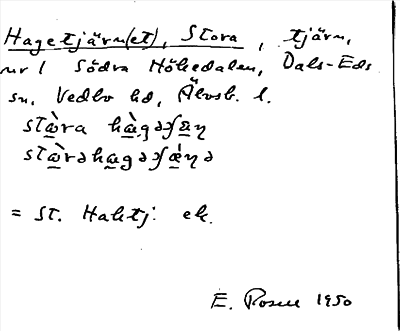 Hagetjärn(et), Stora, tjärn,
nr 1 Södra Höhedalen, Dals-Eds
sn, Vedbo hd, Älvsb. l.
stⱥ̀ra hàgəʃäɳ
stⱥ̀rəhagəʃǽɳə
= St. Haktj. ek.
E. Rosell 1950